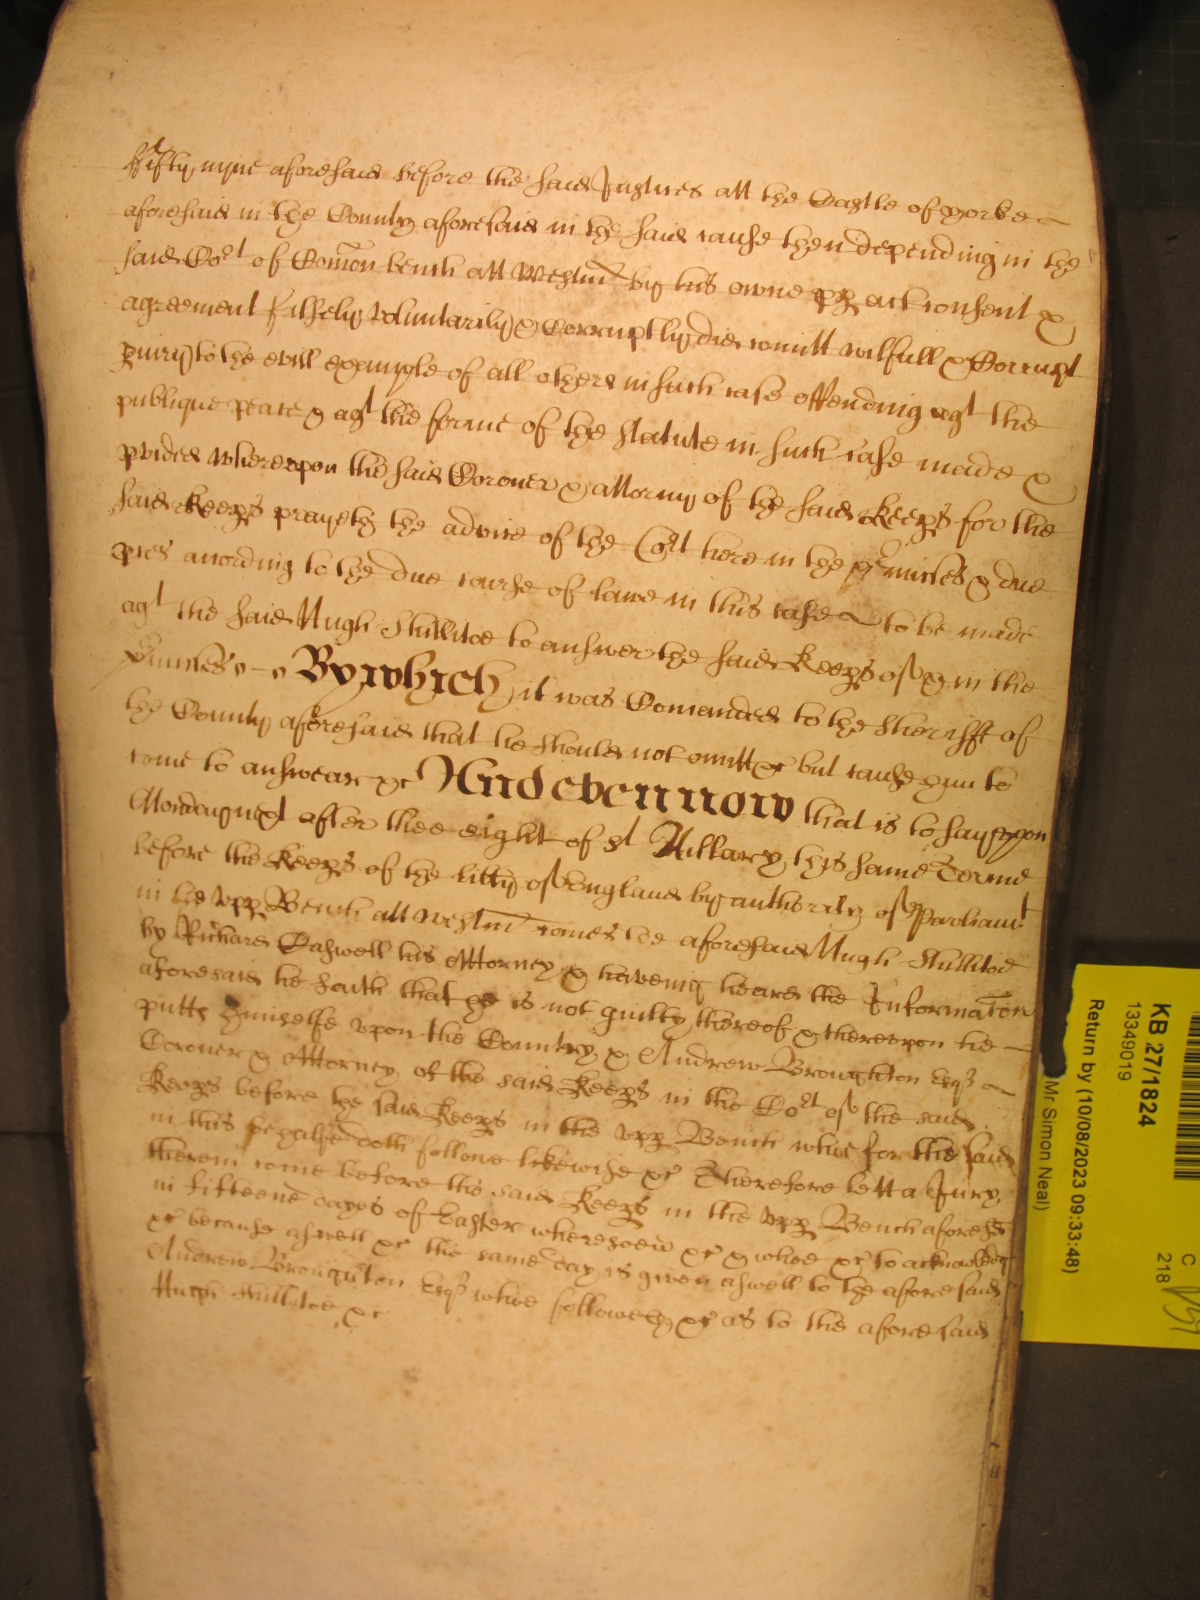 ffifty nyne aforesaid before the said Justices att the Castle of Yorke
aforesaid in the County aforesaid in the said cause then depending in the
said Cort of Comon bench att Westm by his owne pp act consent &
agreement falsely voluntarily & Corruptly did comitt wilfull & Corrupt
piury to the evill example of all others in such case offending agt the
publique peace & agt the forme of the Statute in such case made &
pvided whereupon the said Coroner & attorny of the said Keeps for the
said Keeps prayeth the advice of the Cort here in the pmisses & due
pces according to the due course of lawe in this case to be made
agt the said Hugh Shillitoe to answer the said Keeps of & in the
pmisses By which it was Comanded to the Sheriffe of
the County aforesaid that he should not omitt &c but cause him to
come to answeare &c And even now that is to say upon
Monday next after thee eight of St Hillary this same Terme
before the Keeps of the libty of England by authority of Parliamt
in the upp Bench att Westm comes the aforesaid Hugh Shillitoe
by Richard Caswell his Attorney & haveing heard the Informacon
aforesaid he saith that he is not guilty thereof & thereupon he
putts himselfe upon the Country & Andrew Broughton Esqr
Coroner & Attorney of the said Keeps in the Cort of the said
Keeps before the said Keeps in the upp Bench whoe for the said
in this behalfe doth followe likewise &c Therefore lett a Jury
thereon come before the said Keeps in the upp Bench aforesd
in fifteene dayes of Easter wheresoevr &c & whoe &c to acknowledge
&c because aswell &c the same day is given aswell to the aforesaid
Andrew Broughton Esqr whoe followeth &c as to the aforesaid
Hugh Shillitoe &c
KB 27/1824
13349019
Return by (10/08/2023 09:33:48)
Mr Simon Neal)
C
218